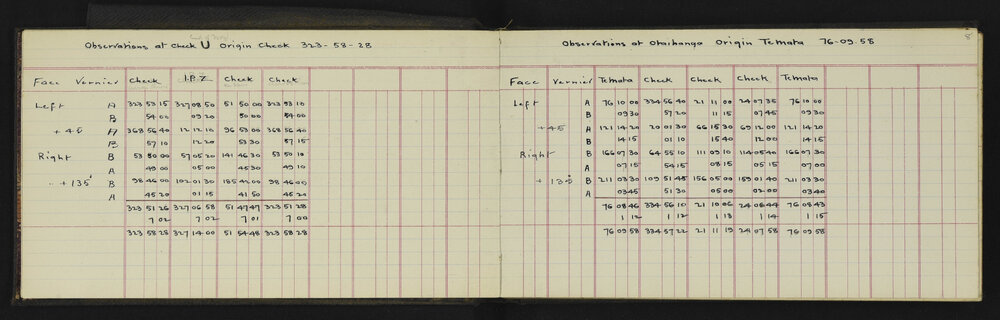 Observations at Check U Origin Check 323-58-28
Face Vernier Check I.P.Z Check Check
Left A 323 53 15 327 08 50 51 50 00 323 53 10
B 54 00 09 20 50 00 54 00
+45 A 368 56 40 12 12 10 96 53 00 368 56 40
B 57 10 12 20 53 30 57 15
Right B 53 50 00 57 05 20 141 46 30 53 50 10
A 49 00 05 00 45 30 49 10
+135 B 98 46 00 102 01 30 185 42 00 98 46 00
A 45 20 01 15 41 50 45 20
323 51 26 327 06 58 51 47 47 323 51 28
7 02 7 02 7 01 7 00
323 58 28 327 14 00 51 54 48 323 58 28
Observations at Otaihanga Origin Te Mata 76-09-58
Face Vernier Te Mata Check Check Check Te Mata
Left A 76 10 00 334 56 40 21 11 00 24 07 35 76 10 00
B 09 30 57 20 11 15 07 45 09 30
+45 A 121 14 20 20 01 30 66 15 30 69 12 00 121 14 20
B 14 15 01 10 15 40 12 00 14 15
Right B 166 07 30 64 55 10 111 09 10 114 05 40 166 07 30
A 07 15 54 15 08 15 05 15 07 00
+135 B 211 03 30 109 51 45 156 05 00 159 01 40 211 03 30
A 03 45 51 30 05 00 02 00 03 40
76 08 46 334 56 10 21 10 06 24 06 44 76 08 43
1 12 1 12 1 13 1 14 1 15
76 09 58 334 57 22 21 11 19 241 07 58 76 09 58